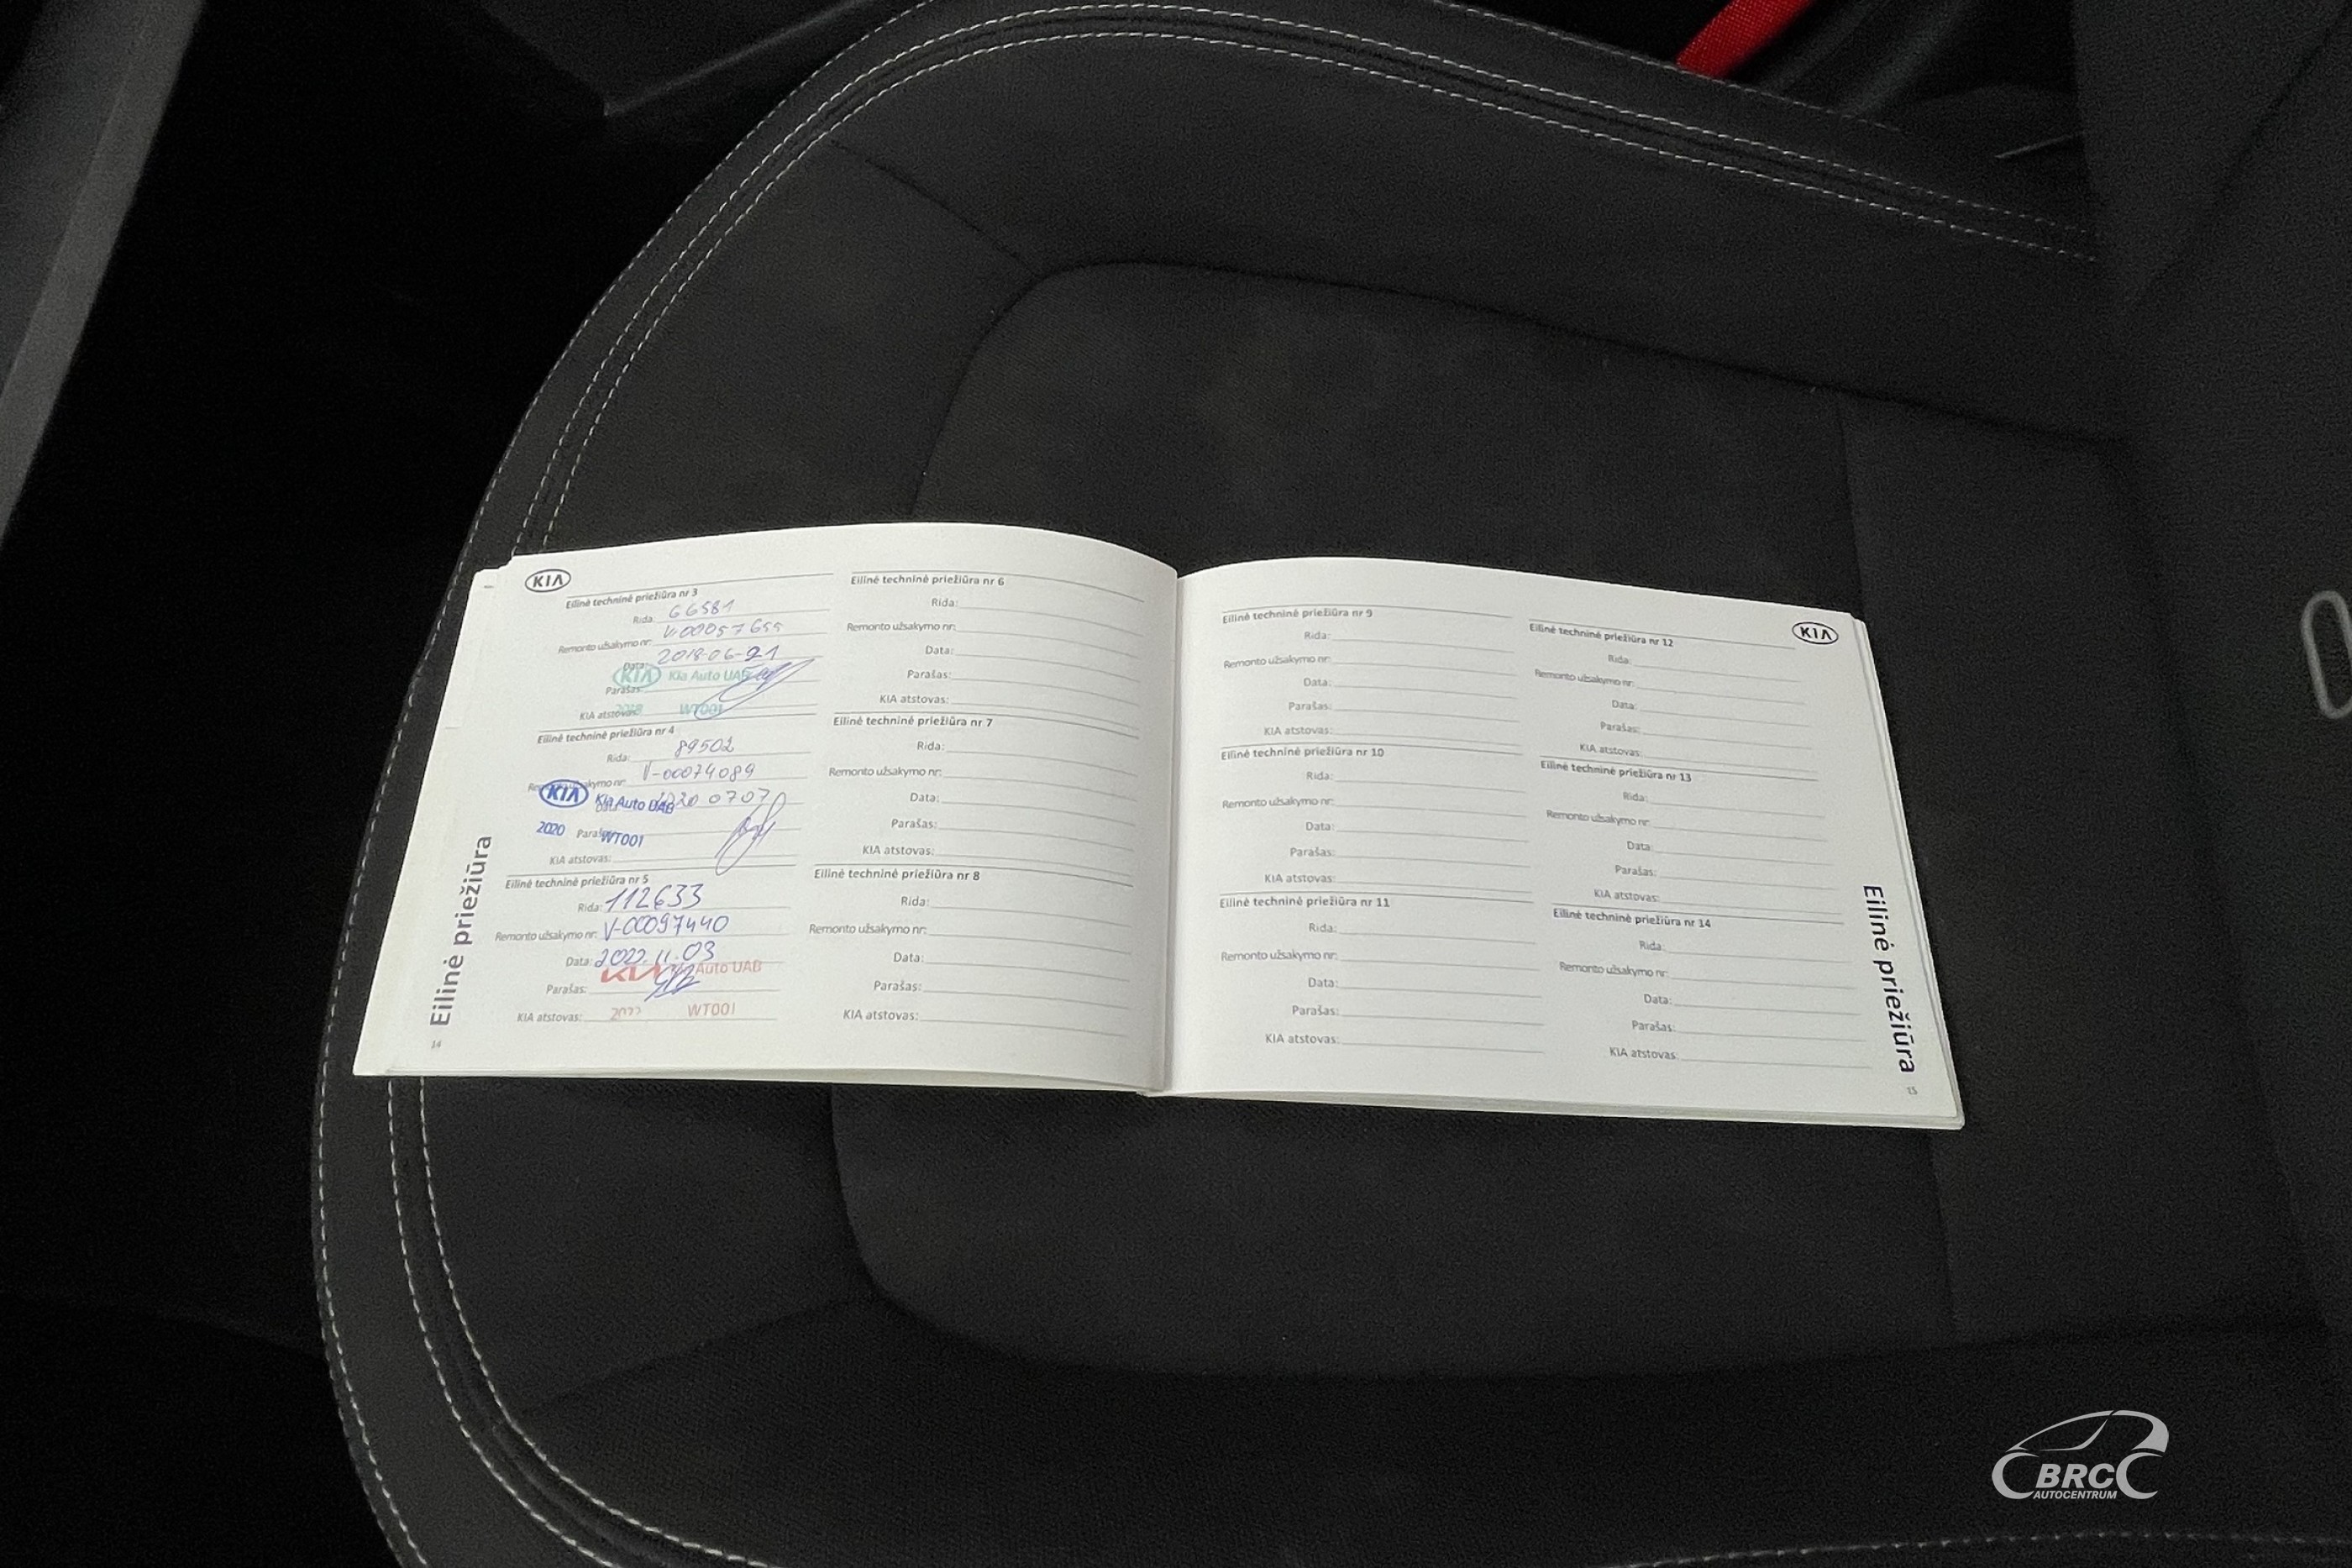 KIA
Eilinė techninė priežiūra nr 3
Rida: 66581
Remonto užsakymo nr: V-00057655
Data: 2018-06-21
KIA Kia Auto UAB
Parašas:
KIA atstovas: 2018 WT001
Eilinė techninė priežiūra nr 4
Rida: 89502
Remonto užsakymo nr: V-00074089
KIA Kia Auto UAB
Data: 2020 0707
2020 Parašas: WT001
KIA atstovas:
Eilinė techninė priežiūra nr 5
Rida: 112633
Remonto užsakymo nr: V-00097440
Data: 2022.11.03
KIA Kia Auto UAB
Parašas:
KIA atstovas: 2022 WT001
Eilinė priežiūra
14
Eilinė techninė priežiūra nr 6
Rida:
Remonto užsakymo nr:
Data:
Parašas:
KIA atstovas:
Eilinė techninė priežiūra nr 7
Rida:
Remonto užsakymo nr:
Data:
Parašas:
KIA atstovas:
Eilinė techninė priežiūra nr 8
Rida:
Remonto užsakymo nr:
Data:
Parašas:
KIA atstovas:
Eilinė techninė priežiūra nr 9
Rida:
Remonto užsakymo nr:
Data:
Parašas:
KIA atstovas:
Eilinė techninė priežiūra nr 10
Rida:
Remonto užsakymo nr:
Data:
Parašas:
KIA atstovas:
Eilinė techninė priežiūra nr 11
Rida:
Remonto užsakymo nr:
Data:
Parašas:
KIA atstovas:
KIA
Eilinė techninė priežiūra nr 12
Rida:
Remonto užsakymo nr:
Data:
Parašas:
KIA atstovas:
Eilinė techninė priežiūra nr 13
Rida:
Remonto užsakymo nr:
Data:
Parašas:
KIA atstovas:
Eilinė techninė priežiūra nr 14
Rida:
Remonto užsakymo nr:
Data:
Parašas:
KIA atstovas:
Eilinė priežiūra
15
BRC
AUTOCENTRUM